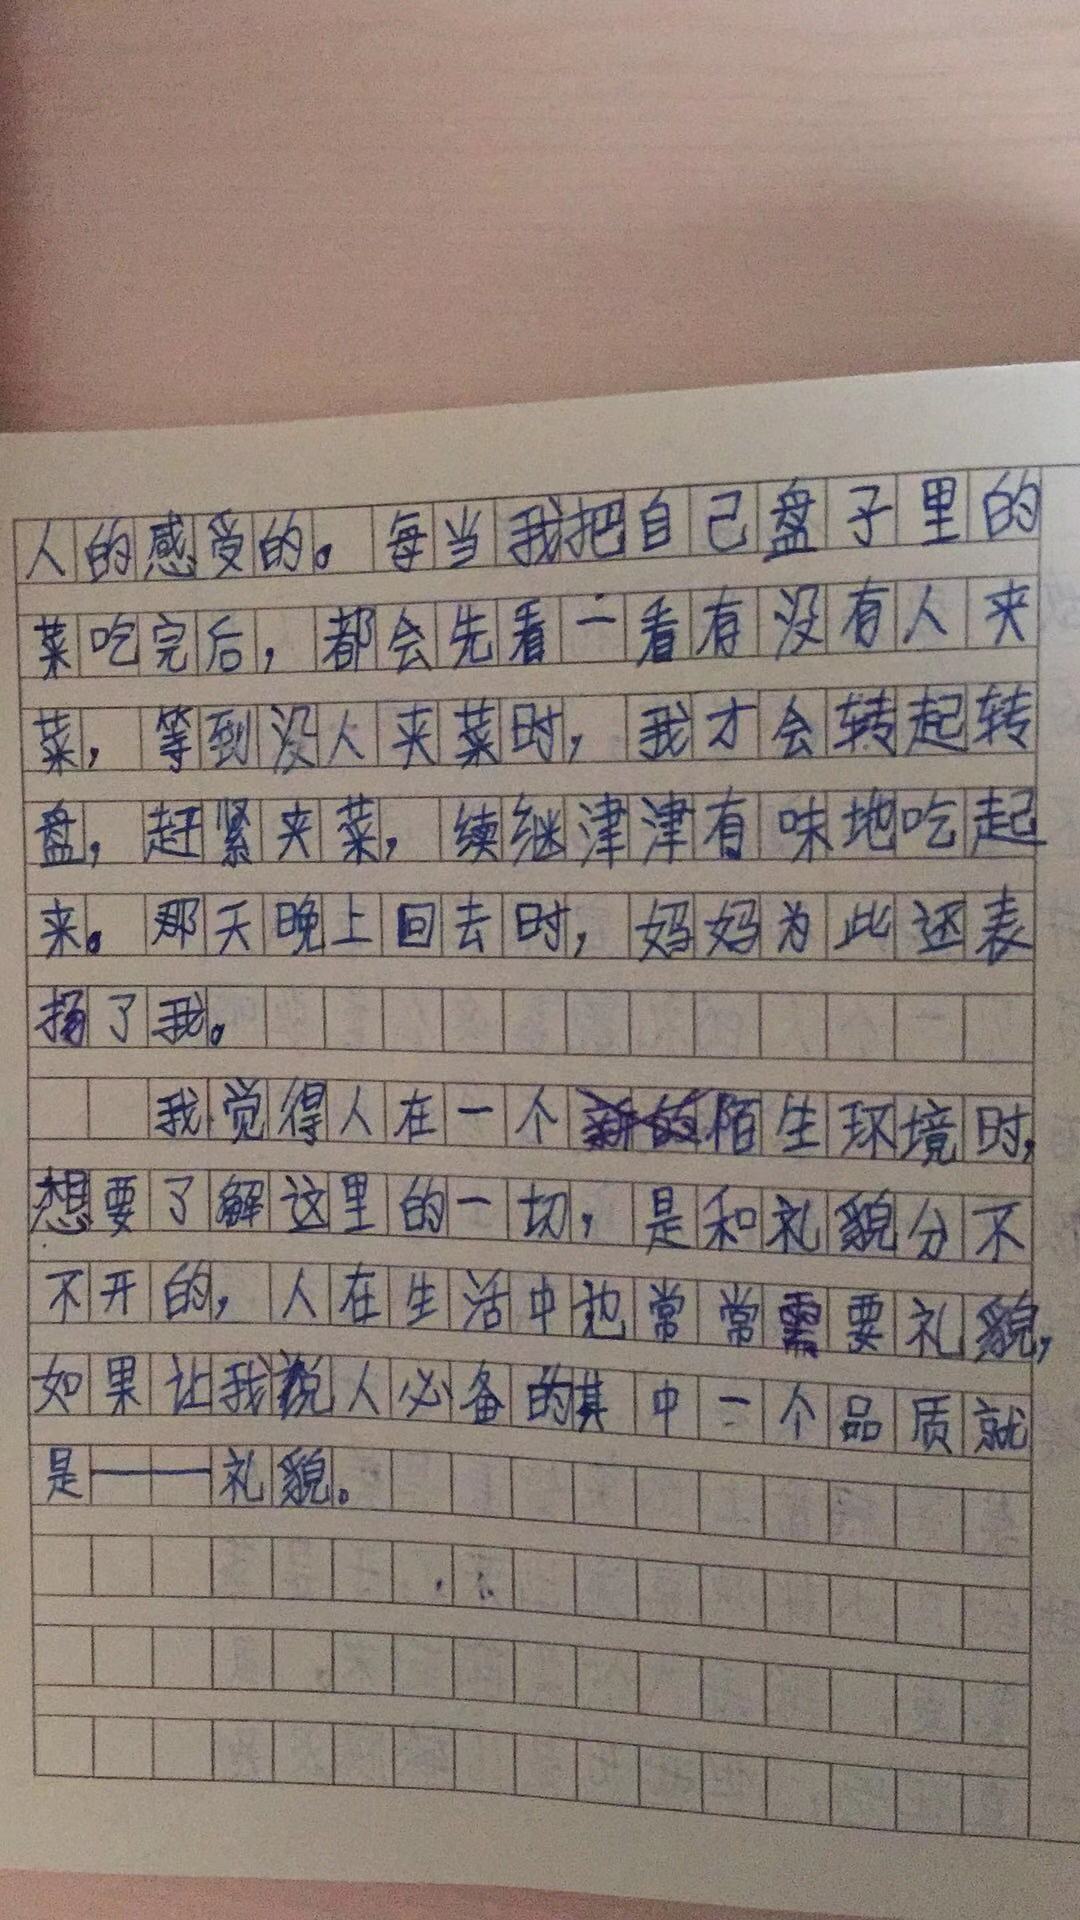 人的感受的。每当我把自己盘子里的
菜吃完后，都会先看一看有没有人夹
菜，等到没人夹菜时，我才会转起转
盘，赶紧夹菜，续继津津有味地吃起
来。那天晚上回去时，妈妈为此还表
扬了我。
我觉得人在一个陌生环境时，
想要了解这里的一切，是和礼貌分不
不开的，人在生活中也常常需要礼貌，
如果让我说人必备的其中一个品质就
是——礼貌。